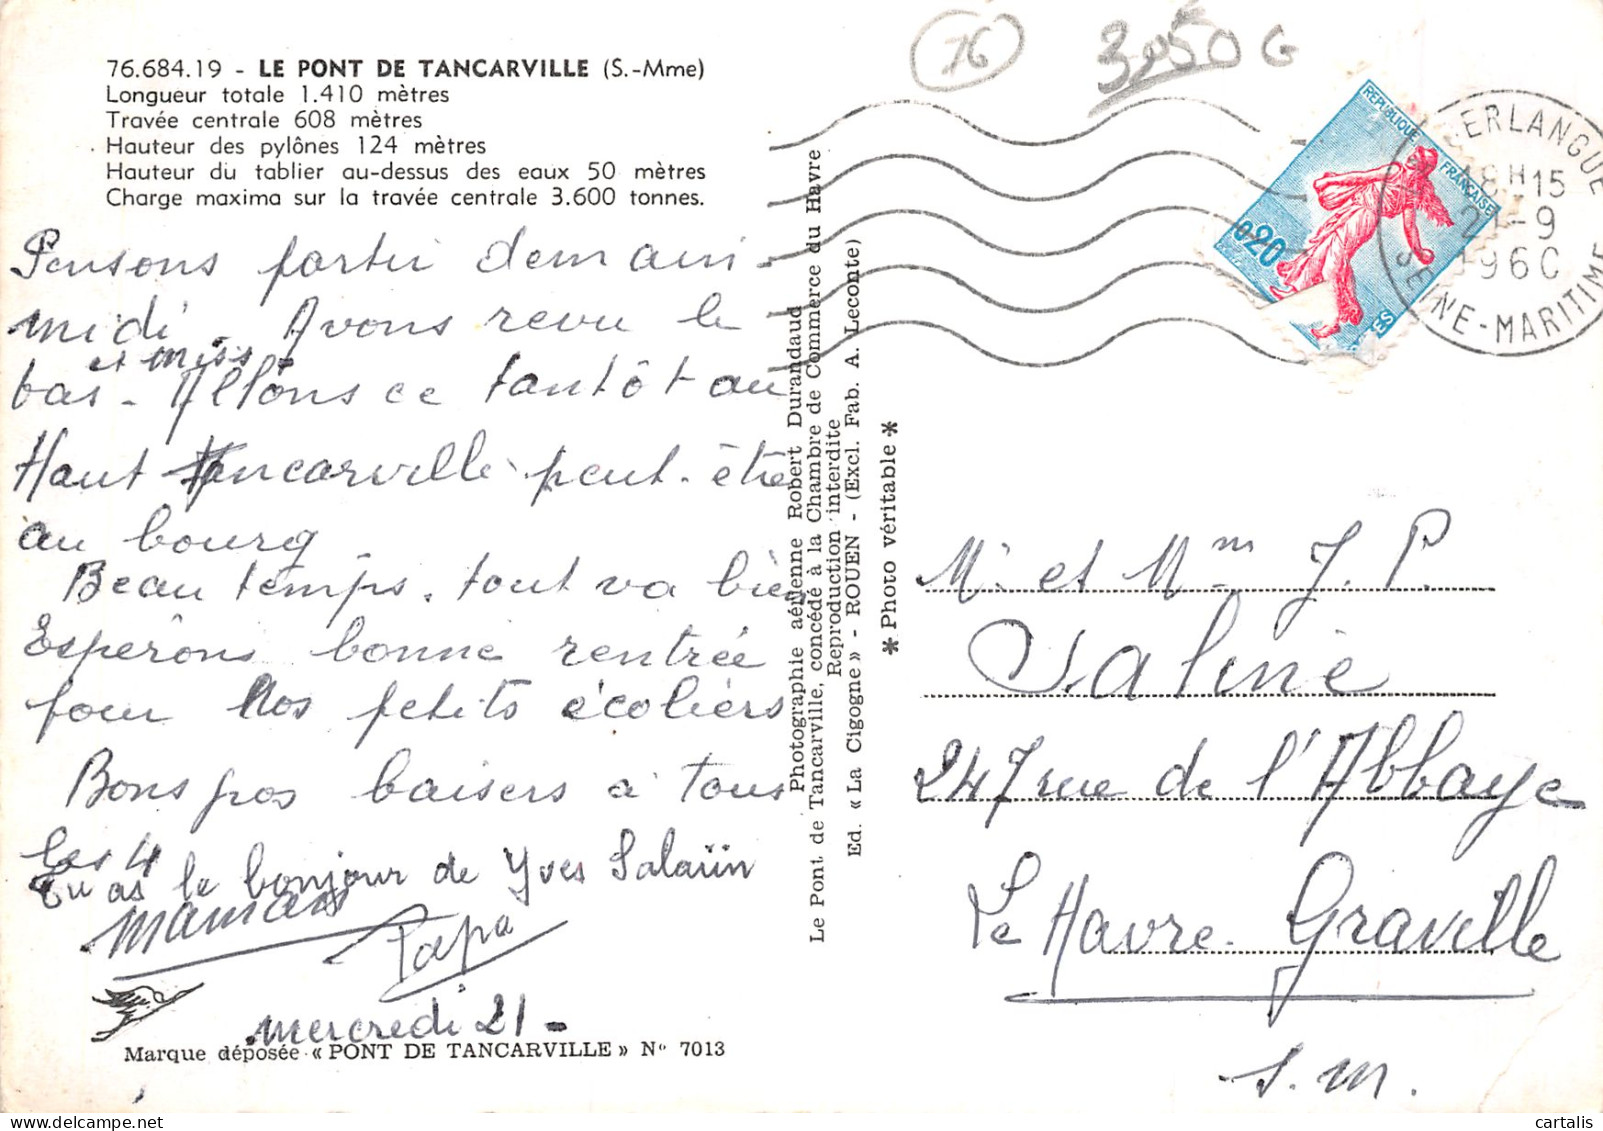 76.684.19 - LE PONT DE TANCARVILLE (S.-Mme)
Longueur totale 1.410 mètres
Travée centrale 608 mètres
Hauteur des pylônes 124 mètres
Hauteur du tablier au-dessus des eaux 50 mètres
Charge maxima sur la travée centrale 3.600 tonnes.
Pensons partir demain -
midi. Avons revu le
bas - et miss Allons ce tantôt au
Haut Tancarville peut-être
au bourg
Beau temps. tout va bien
Espérons bonne rentrée
pour Nos petits écoliers
Bons gros baisers à tous
les 4
Tu as le bonjour de Yves Salaün
Maman
Papa
mercredi 21 -
Marque déposée « PONT DE TANCARVILLE » N° 7013
Photographie aérienne Robert Durandaud
Le Pont de Tancarville, concédé à la Chambre de Commerce du Havre
Reproduction interdite
Ed. « La Cigogne » - ROUEN - (Excl. Fab. A. Leconte)
* Photo véritable *
76
3,50 G
REPUBLIQUE FRANÇAISE
0,20
ERLANGUE
18H15
9
1960
SEINE-MARITIME
Mr et Mme J. P.
247 rue de l'Abbaye
Le Havre - Graville
S. M.
cartalis.com